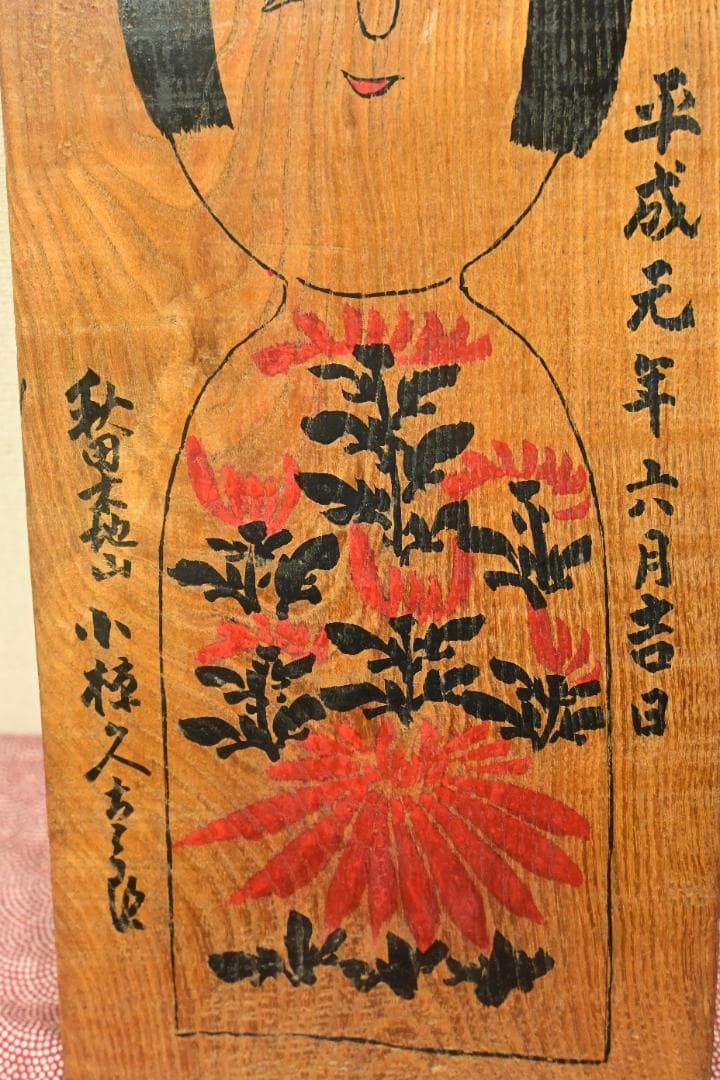 平成元年六月吉日
秋田木地山 小椋久太郎